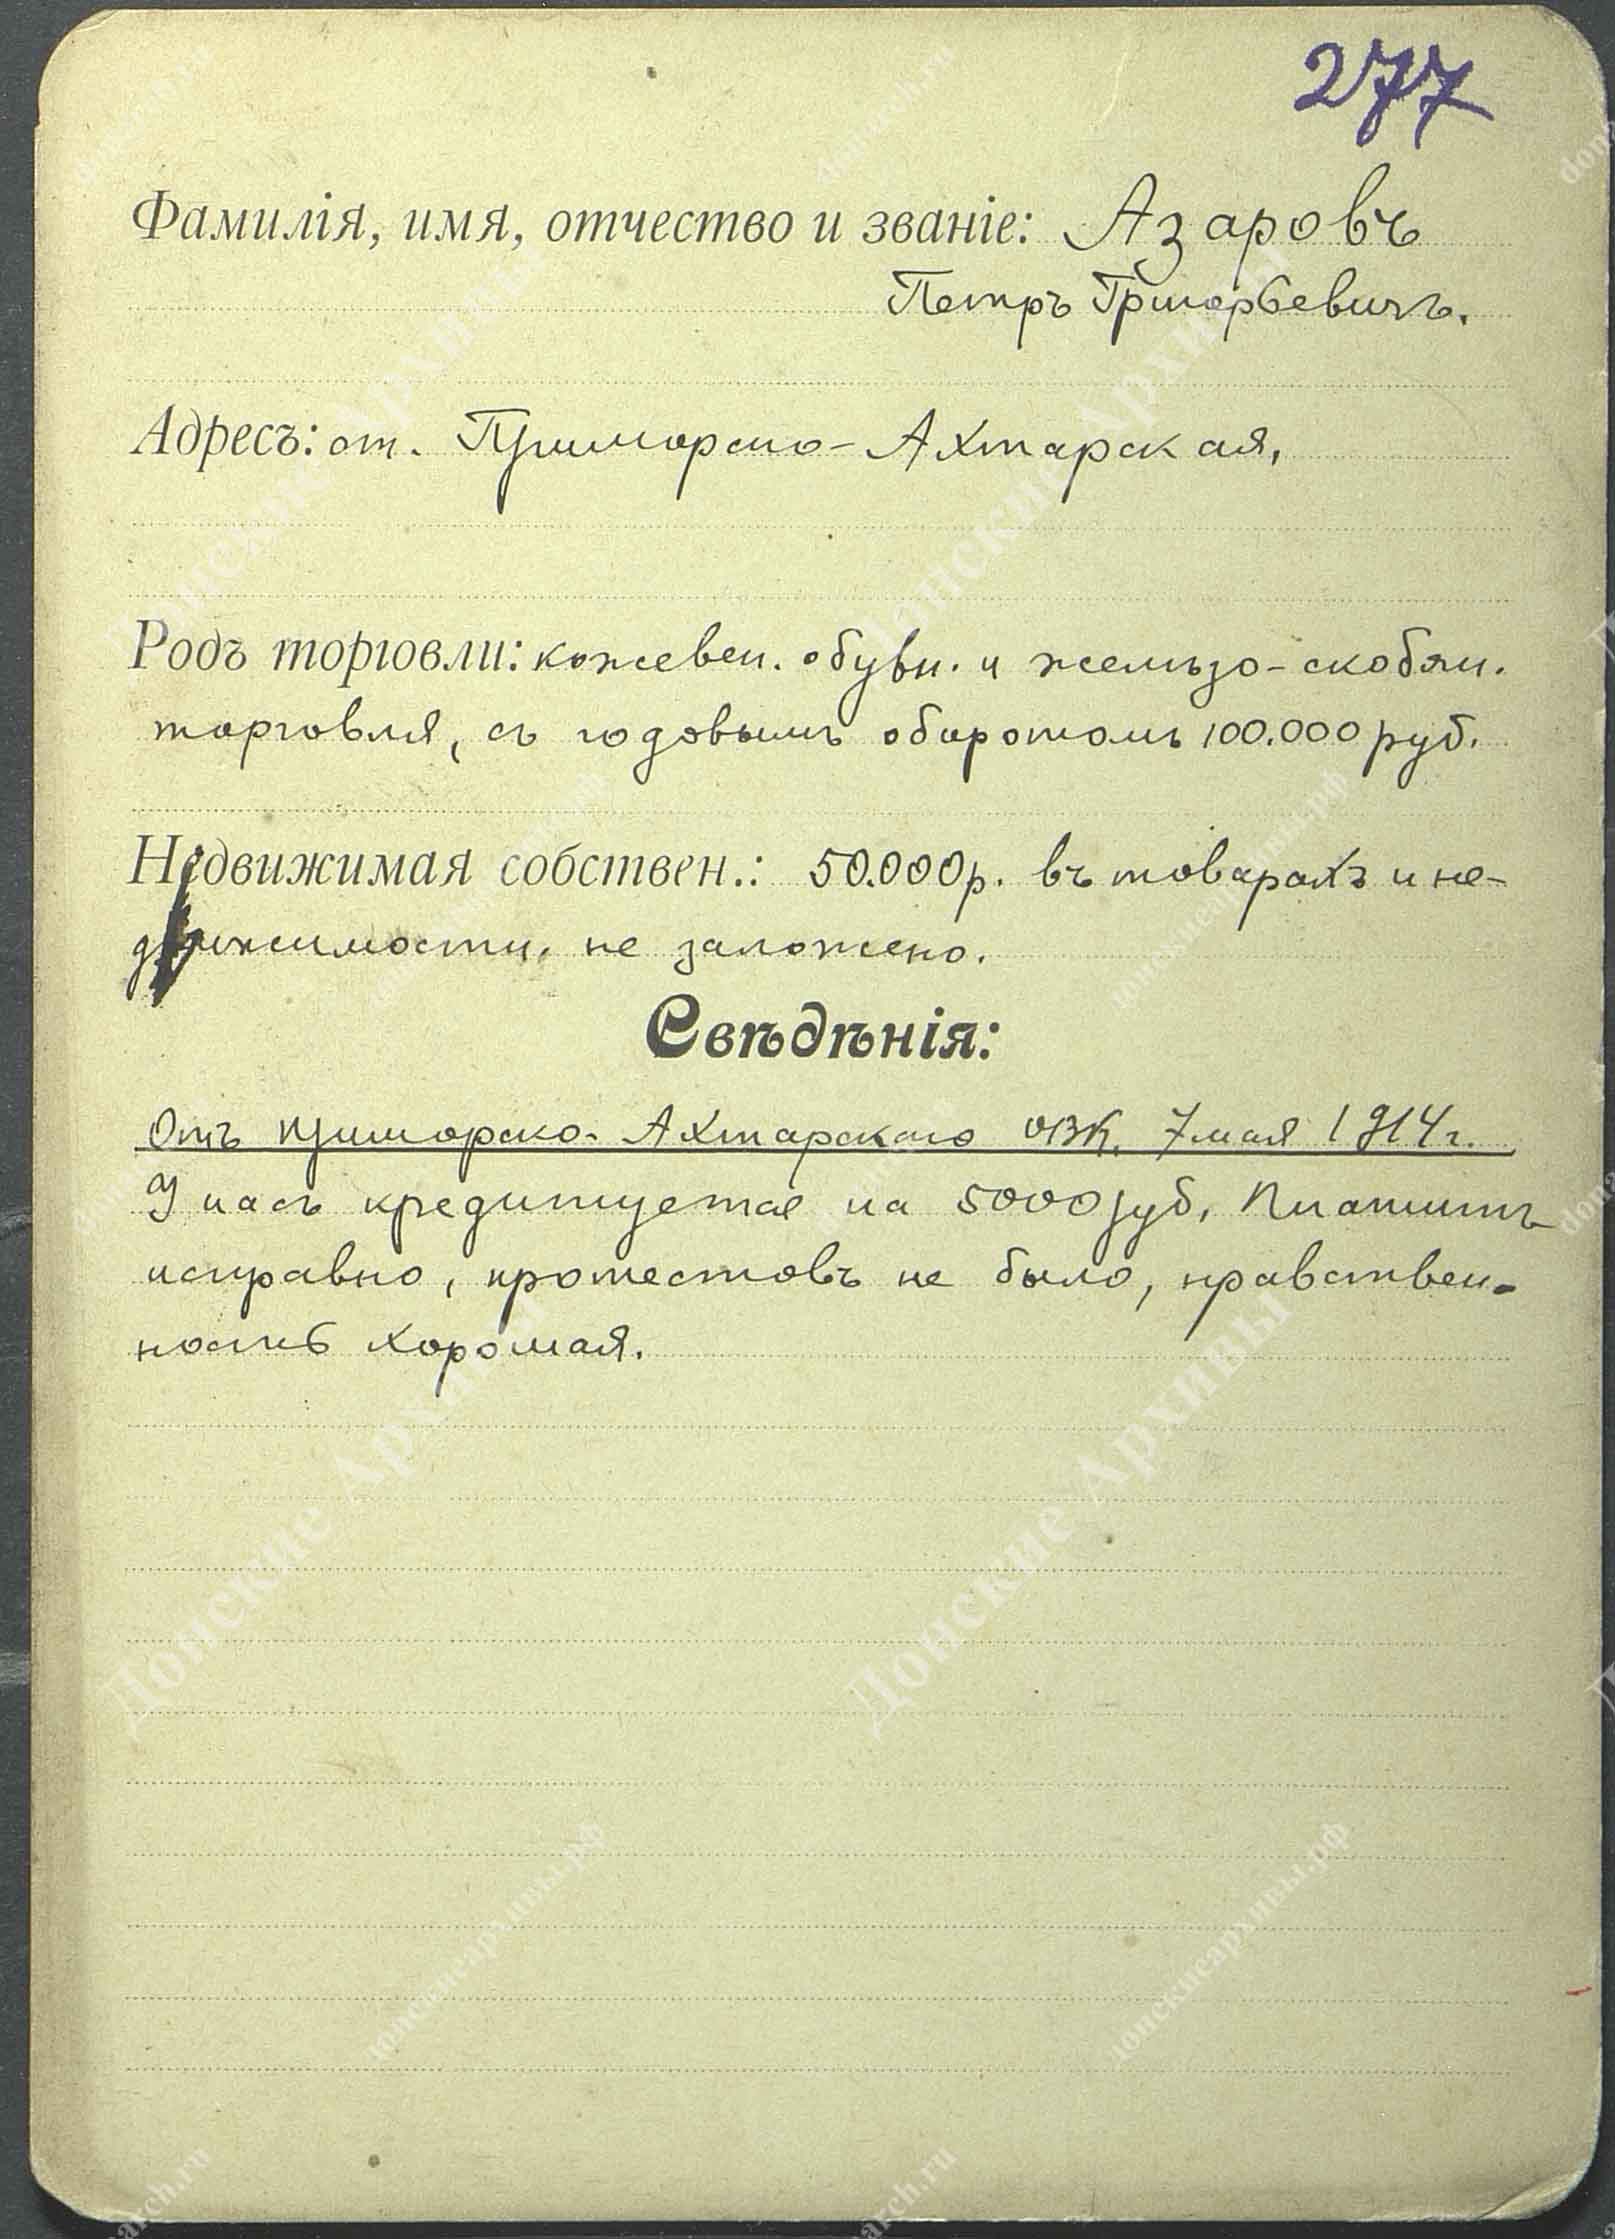 277
Фамилія, имя, отчество и званіе: Азаровъ
Петръ Григорьевичъ.
Адресъ: ст. Приморско-Ахтарская,
Родъ торговли: кожевен. обувн. и желѣзо-скобян.
торговля, съ годовымъ оборотомъ 100.000 руб.
Недвижимая собствен.: 50.000 р. въ товарахъ и не-
движимости, не заложено.
Свѣдѣнія:
Отъ Приморско-Ахтарскаго ОВК. 7 мая 1914 г.
У насъ кредитуется на 5000 руб. Платитъ
исправно, протестовъ не было, нравствен-
ность хорошая.
Донские Архивы
Донские Архивы
Донские Архивы
Донские Архивы
донскиеархивы.рф
донскиеархивы.рф
донскиеархивы.рф
донскиеархивы.рф